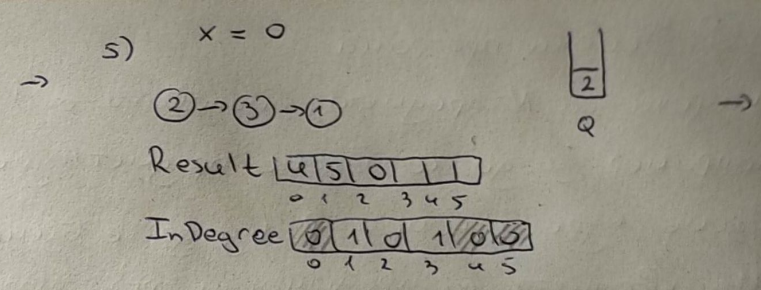 5) x = 0
→ 2 → 3 → 1 2 →
Q
Result 4 5 0
0 1 2 3 4 5
InDegree 0 1 0 1 0 0
0 1 2 3 4 5